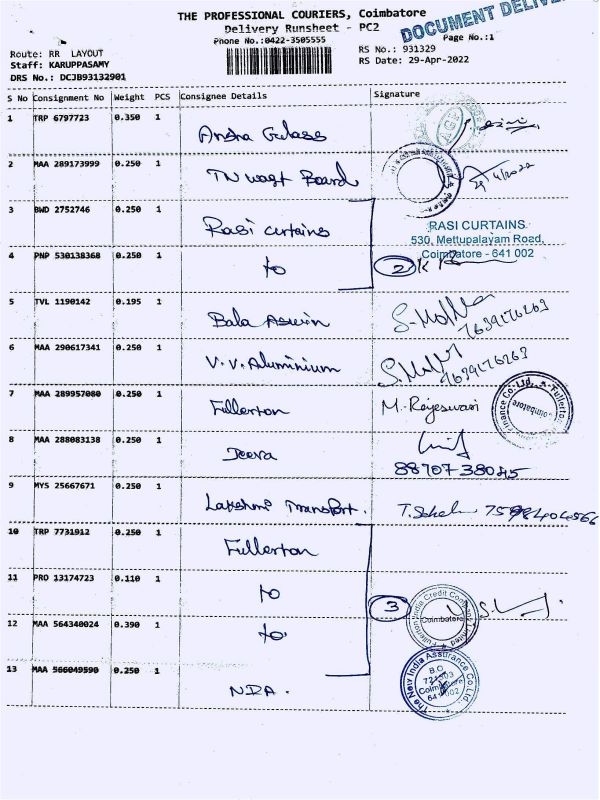 THE PROFESSIONAL COURIERS, Coimbatore
Delivery Runsheet - PC2
DOCUMENT
Phone No.:0422-3505555
Page No.:1
Route: RR LAYOUT
RS No.: 931329
Staff: KARUPPASAMY
RS Date: 29-Apr-2022
DRS No.: DCJB93132901
S No Consignment No Weight PCS Consignee Details Signature
1 TRP 6797723 0.350 1
2 MAA 289173999 0.250 1 TN Board
3 BWD 2752746 0.250 1 Rasi curtains
RASI CURTAINS
530, Mettupalayam Road,
Coimbatore - 641 002
4 PNP 530138368 0.250 1 to 2
5 TVL 1190142 0.195 1 Bala Aswin
7639176263
6 MAA 290617341 0.250 1 V.V. Aluminium
7639176263
7 MAA 289957080 0.250 1 Fullerton M. Rajeswari
Coimbatore
8 MAA 288083138 0.250 1 Jeeva
88707 38045
9 MYS 25667671 0.250 1 Lakshmi Transport.
10 TRP 7731912 0.250 1 Fullerton
11 PRO 13174723 0.110 1 to 3
Fullerton India Credit Company Limited
Coimbatore
12 MAA 564340024 0.390 1 to
13 MAA 566049590 0.250 1 NIA.
The New India Assurance Co. Ltd.
B.O.
Coimbatore
641 002